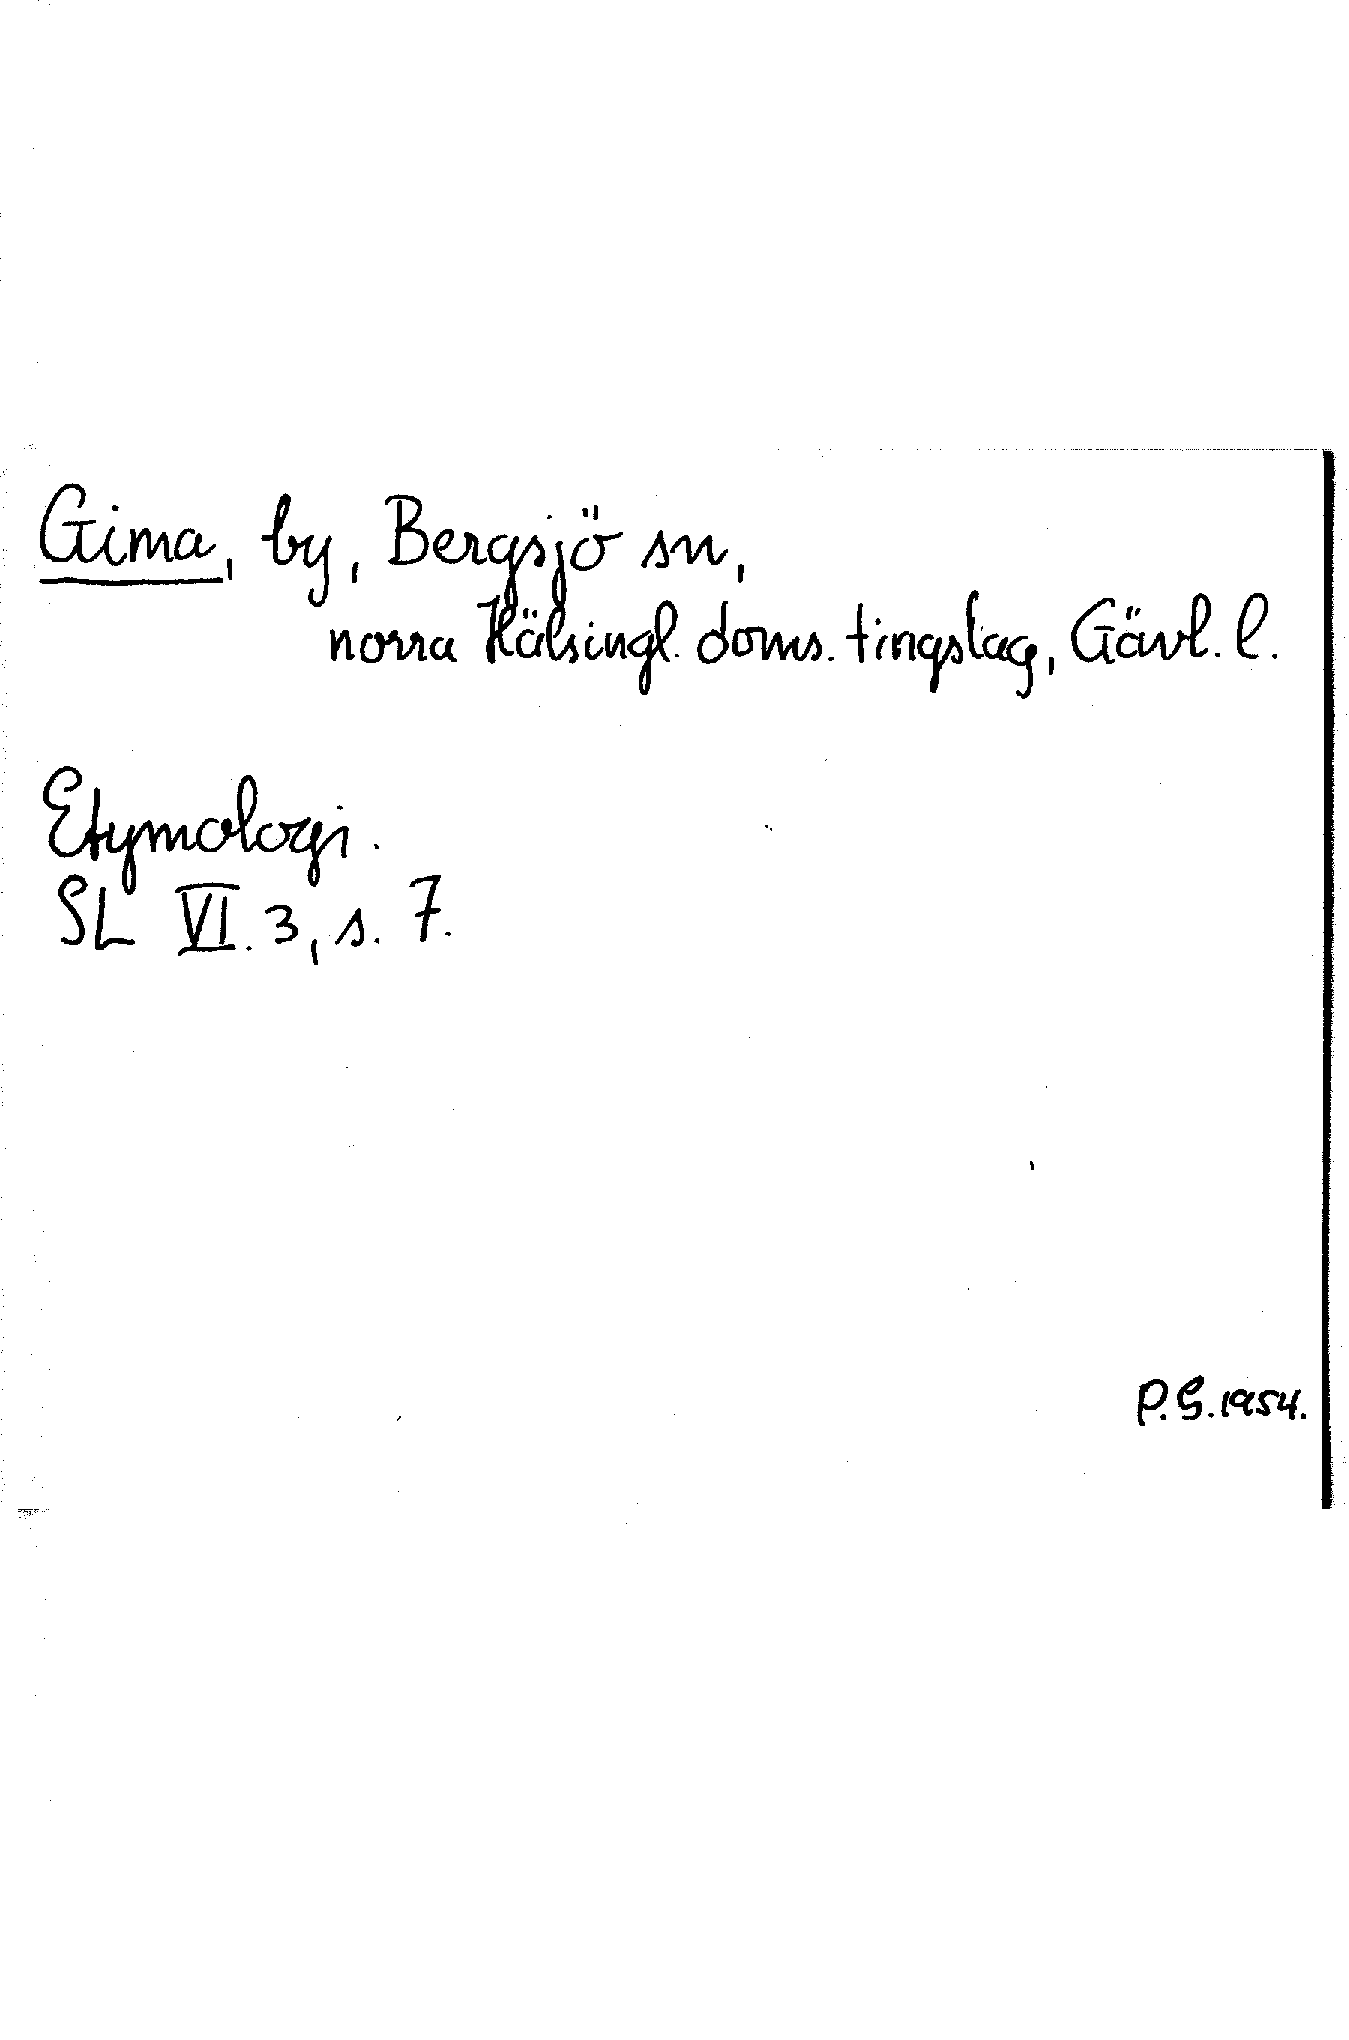 Gima, by, Bergsjö sn,
norra Hälsingl. doms. tingslag, Gävl. l.
Etymologi.
SL VI. 3, s. 7.
P.G. 1954.